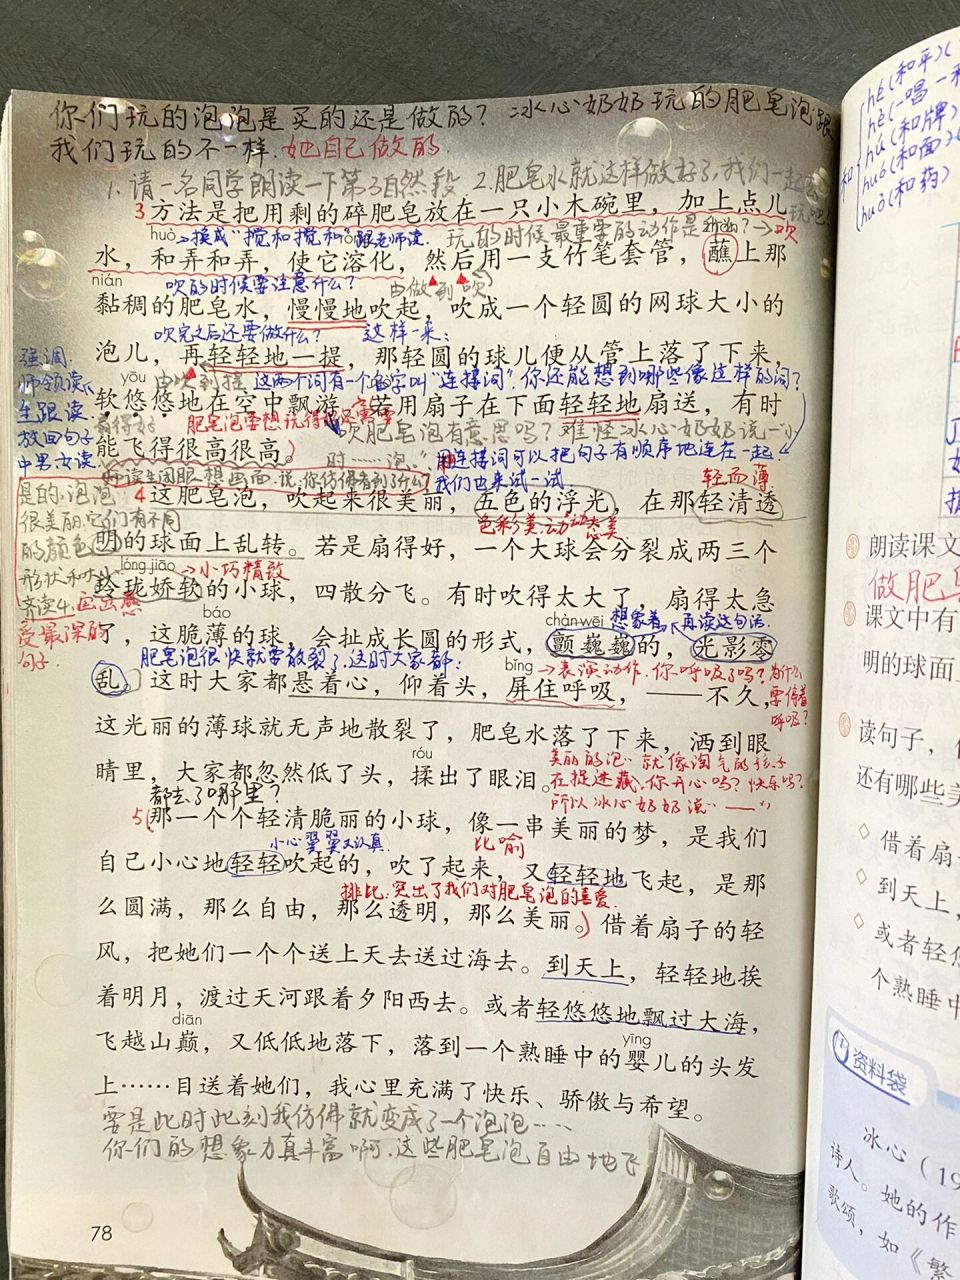 你们玩的泡泡是买的还是做的？冰心奶奶玩的肥皂泡跟
我们玩的不一样.她自己做的.
1.请一名同学朗读一下第3自然段 2.肥皂水就这样做好了,我们一起
玩吧!
3方法是把用剩的碎肥皂放在一只小木碗里，加上点儿
huò
换成“搅和搅和”跟老师读.
玩的时候最重要的动作是 →吹
水，和弄和弄，使它溶化，然后用一支竹笔套管，蘸上那
nián
吹的时候要注意什么？
由做到吹
黏稠的肥皂水，慢慢地吹起，吹成一个轻圆的网球大小的
吹完之后还要做什么？ 这样一来:
泡儿，再轻轻地一提，那轻圆的球儿便从管上落了下来，
强调.
师领读,
生跟读.
放回句子
中男女读.
yōu
由吹到提 这两个词有一个名字叫“连接词”.你还能想到哪些像这样的词？
软悠悠地在空中飘游。若用扇子在下面轻轻地扇送，有时
肥皂泡要想
吹肥皂泡有意思吗？难怪冰心奶奶说
能飞得很高很高。
用连接词可以把句子有顺序地连在一起.
我们也来试一试.
师读生闭眼想画面.说,你仿佛看到了什么？
轻而薄
4这肥皂泡，吹起来很美丽，五色的浮光，在那轻清透
是的,泡泡
很美丽.它们有不同
的颜色
形状和大小
齐读4.画出感
受最深的
句子.
色彩美.动态美
明的球面上乱转。若是扇得好，一个大球会分裂成两三个
lóng jiāo
→小巧精致
玲珑娇软的小球，四散分飞。有时吹得太大了，扇得太急
báo
chàn wēi
想象着 再读这句话.
了，这脆薄的球，会扯成长圆的形式，颤巍巍的，光影零
肥皂泡很快就要散裂了.这时大家都:
bǐng
→表演动作.你呼吸了吗？为什么
要停着
呼吸？
乱。这时大家都悬着心，仰着头，屏住呼吸，——不久，
这光丽的薄球就无声地散裂了，肥皂水落了下来，洒到眼
róu
美丽的泡 就像淘气的孩子
在捉迷藏.你开心吗？快乐吗？
所以冰心奶奶说
睛里，大家都忽然低了头，揉出了眼泪。
都去了哪里？
5那一个个轻清脆丽的小球，像一串美丽的梦，是我们
小心翼翼又认真
比喻
自己小心地轻轻吹起的，吹了起来，又轻轻地飞起，是那
排比.突出了我们对肥皂泡的喜爱.
么圆满，那么自由，那么透明，那么美丽。借着扇子的轻
风，把她们一个个送上天去送过海去。到天上，轻轻地挨
着明月，渡过天河跟着夕阳西去。或者轻悠悠地飘过大海，
diān
yīng
飞越山巅，又低低地落下，落到一个熟睡中的婴儿的头发
上……目送着她们，我心里充满了快乐、骄傲与希望。
要是此时此刻我仿佛就变成了一个泡泡……
你们的想象力真丰富啊.这些肥皂泡自由地飞
78
和
hé(和平)
hè(一唱一和
hú(和牌)
huó(和面)
huò(和药)
朗读课文
做肥皂
课文中有
明的球面上
读句子，
还有哪些美
借着扇
到天上，
或者轻悠
个熟睡中
资料袋
冰心（19
诗人。她的作
歌颂，如《繁